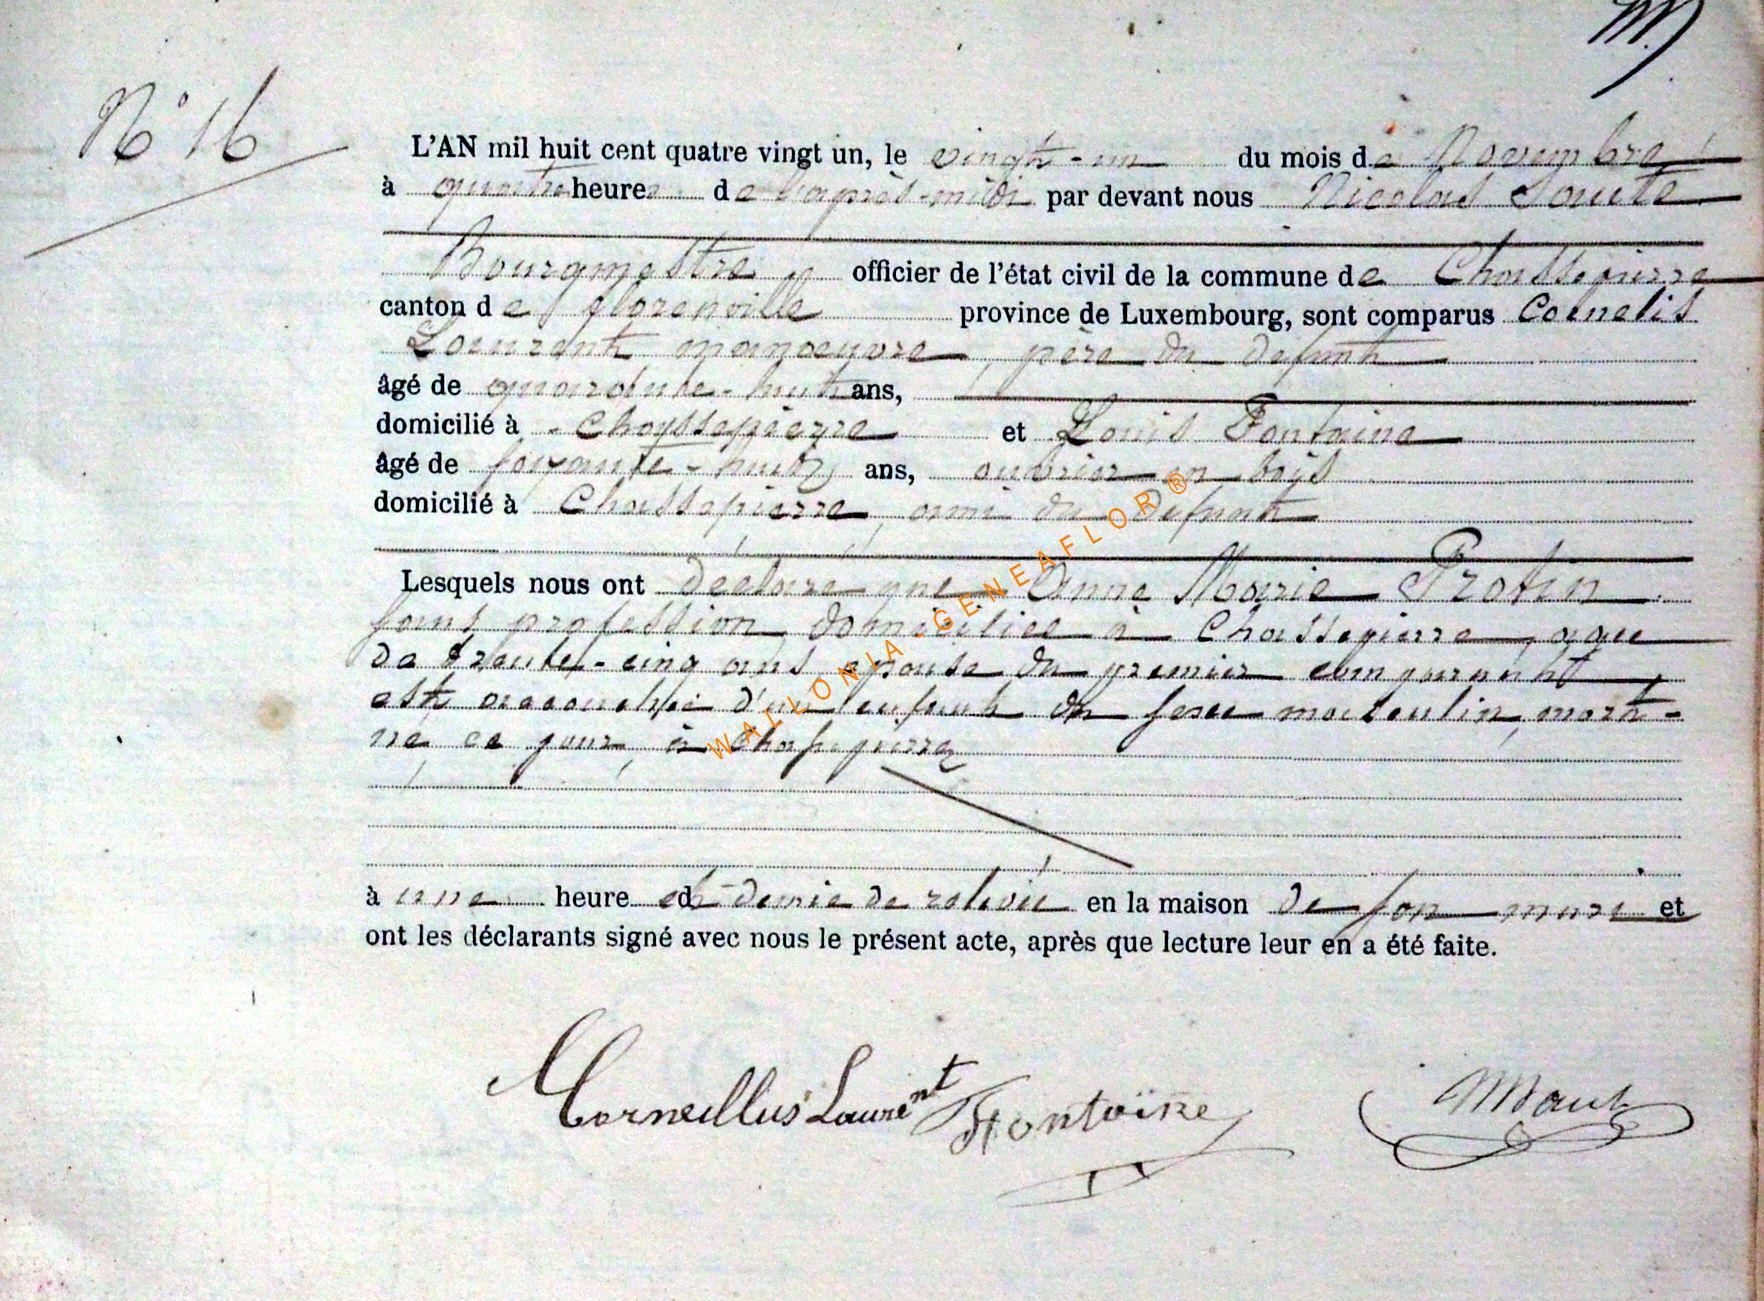 N° 16
L'AN mil huit cent quatre vingt un, le vingt-un du mois de Novembre
à quatre heures de l'après-midi par devant nous Nicolas
Bourgmestre officier de l'état civil de la commune de Chassepierre
canton de florenville province de Luxembourg, sont comparus Cornelis
Laurent manoeuvre, père du défunt
âgé de quarante-huit ans,
domicilié à Chassepierre et Louis Fontaine
âgé de soixante-huit ans, ouvrier en bois
domicilié à Chassepierre, ami du défunt
Lesquels nous ont déclaré que Anne Marie Protin
sans profession, domiciliée à Chassepierre, agée
de trente-cinq ans épouse du premier comparant
est accouchée d'un enfant du sexe masculin, mort-
né, ce jour, à Chassepierre
à une heure et demie de relevée en la maison de son mari et
ont les déclarants signé avec nous le présent acte, après que lecture leur en a été faite.
Corneillus Laurent Fontaine
WALLONIA GENEAFLOR ®